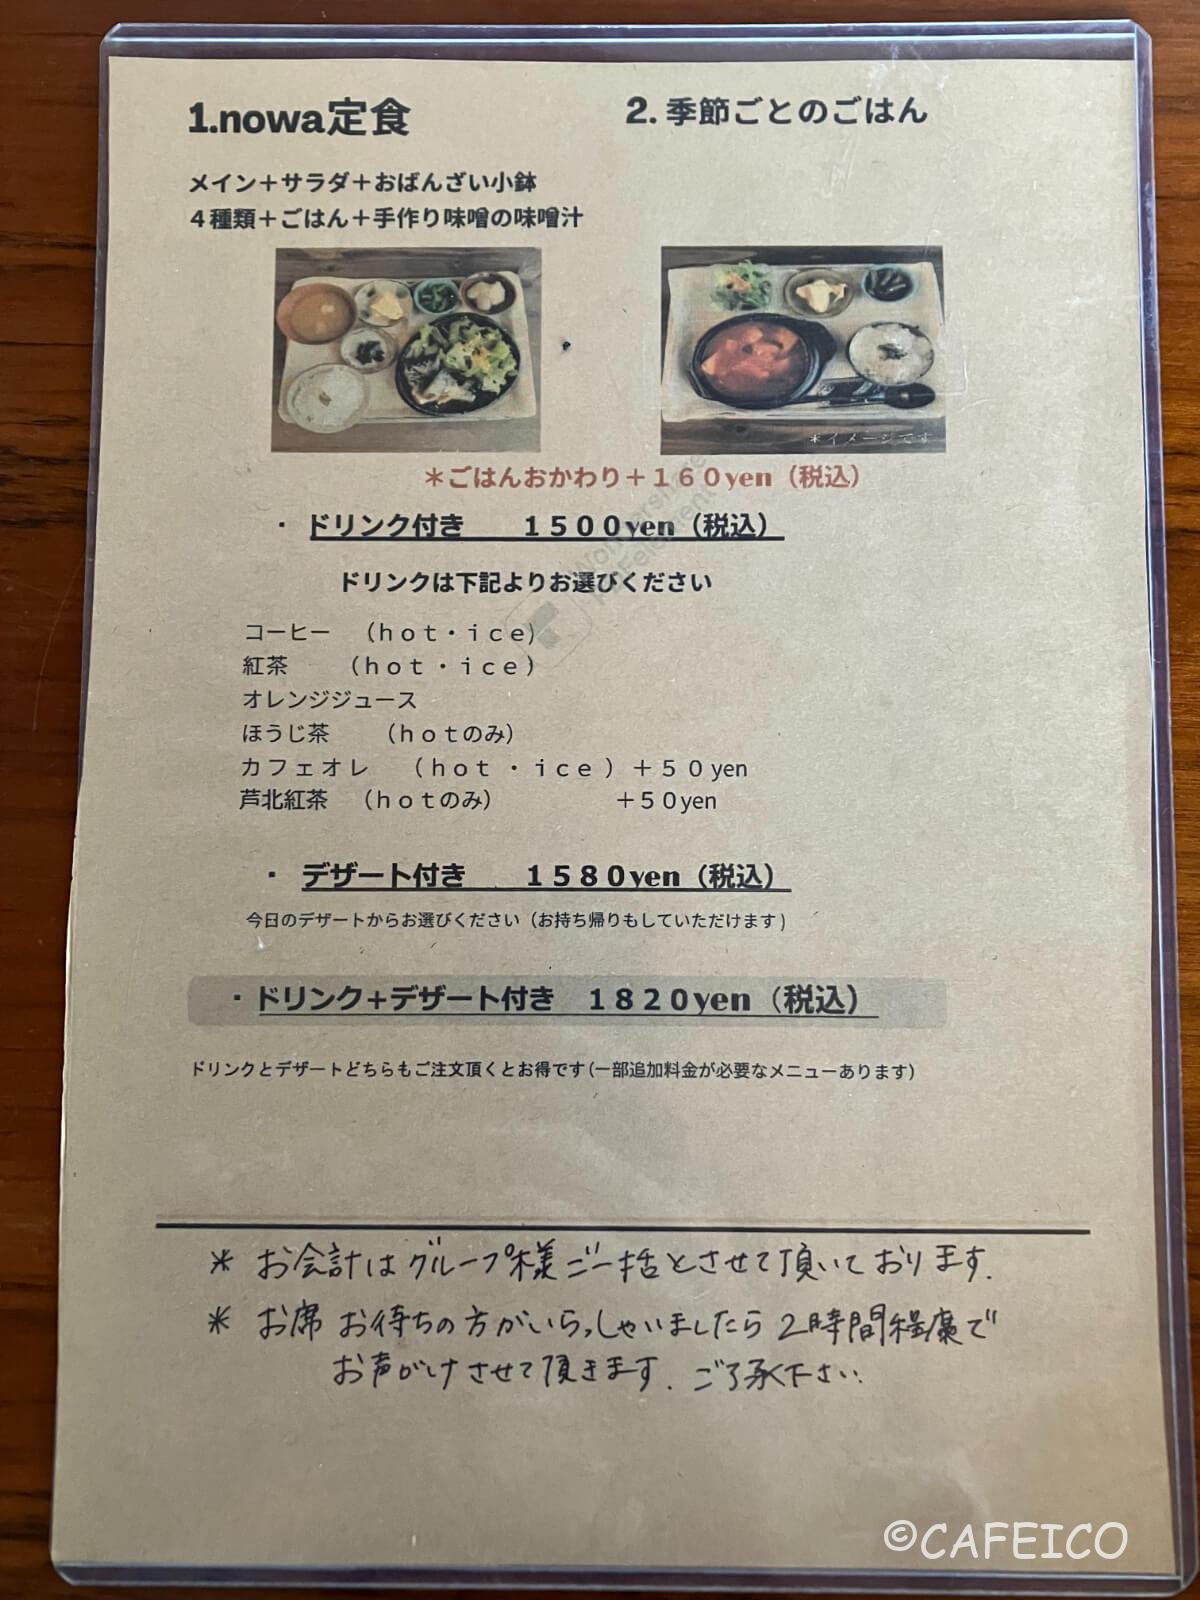 1.nowa定食
2. 季節ごとのごはん
メイン＋サラダ＋おばんざい小鉢
４種類＋ごはん＋手作り味噌の味噌汁
＊イメージです
＊ごはんおかわり＋１６０yen（税込）
・ドリンク付き　１５００yen（税込）
ドリンクは下記よりお選びください
コーヒー　（ｈｏｔ・ｉｃｅ）
紅茶　（ｈｏｔ・ｉｃｅ）
オレンジジュース
ほうじ茶　（ｈｏｔのみ）
カフェオレ　（ｈｏｔ・ｉｃｅ）＋５０yen
芦北紅茶　（ｈｏｔのみ）　＋５０yen
・デザート付き　１５８０yen（税込）
今日のデザートからお選びください（お持ち帰りもしていただけます）
・ドリンク+デザート付き　１８２０yen（税込）
ドリンクとデザートどちらもご注文頂くとお得です（一部追加料金が必要なメニューあります）
＊ お会計はグループ様ご一括とさせて頂いております.
＊ お席 お待ちの方がいらっしゃいましたら 2時間程度で
お声がけさせて頂きます. ご了承下さい.
©CAFEICO